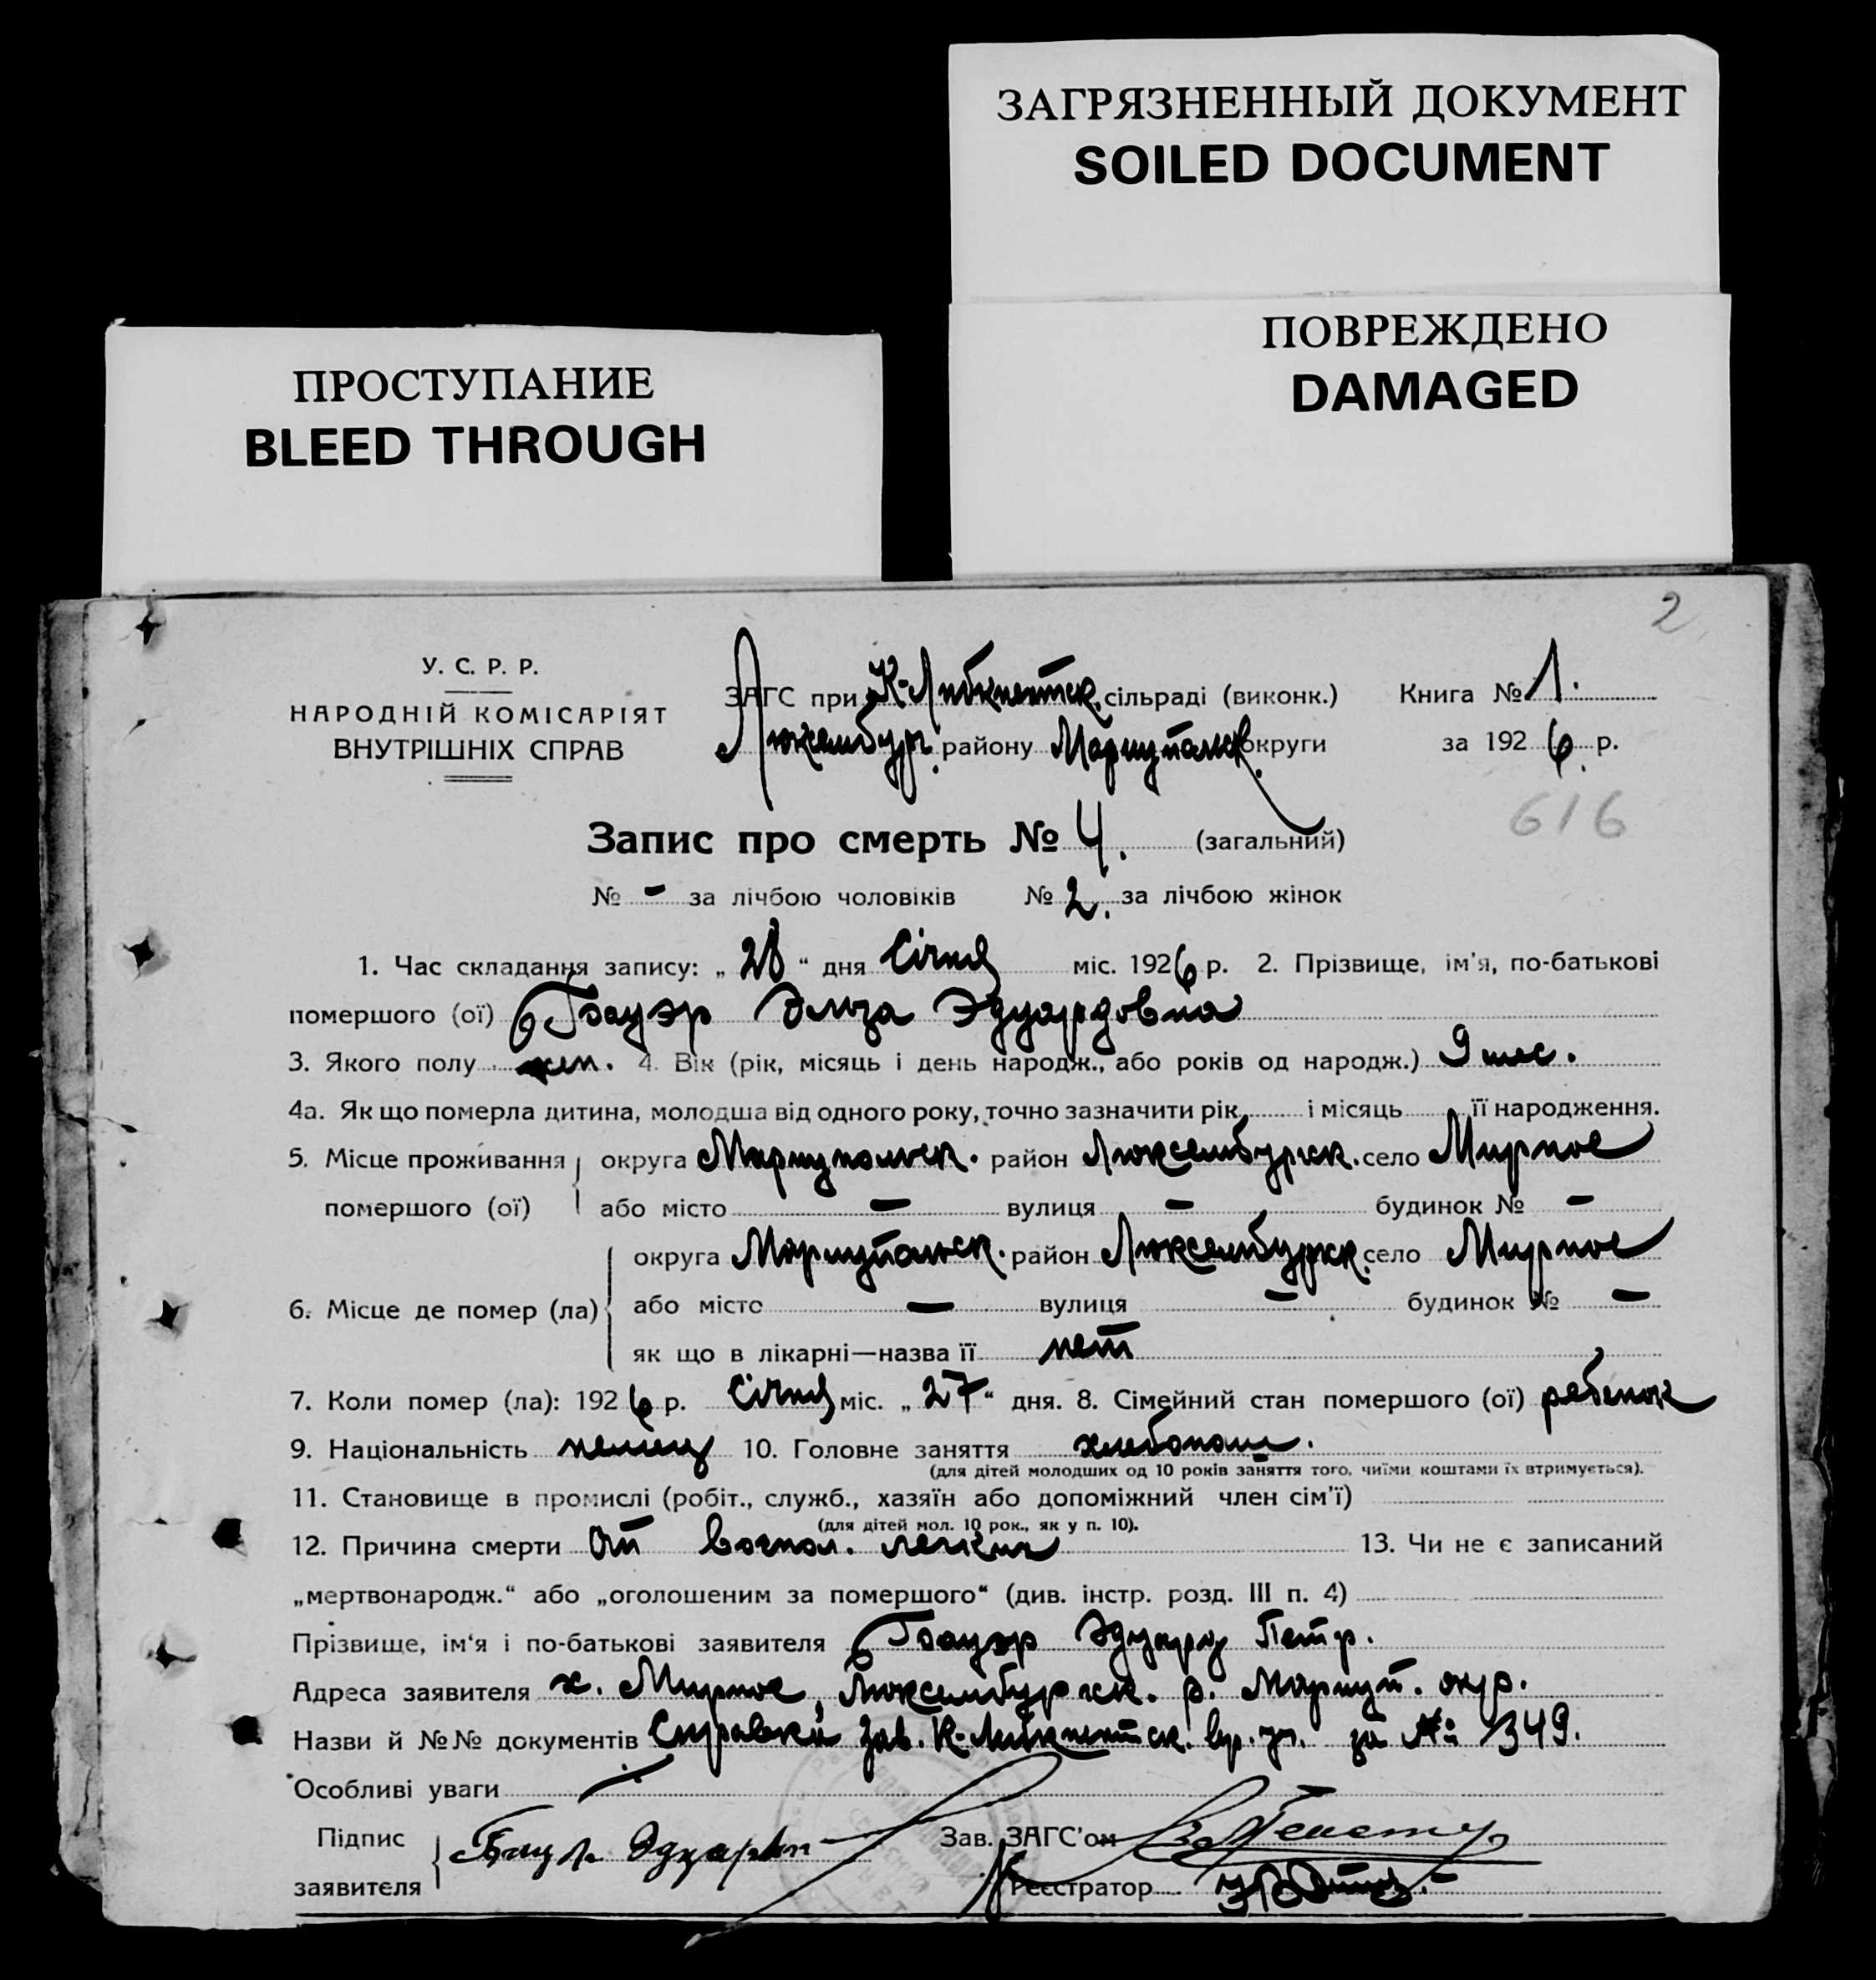 ЗАГРЯЗНЕННЫЙ ДОКУМЕНТ
SOILED DOCUMENT
ПОВРЕЖДЕНО
DAMAGED
ПРОСТУПАНИЕ
BLEED THROUGH
2
У. С. Р. Р.
НАРОДНІЙ КОМІСАРІЯТ
ВНУТРІШНІХ СПРАВ
ЗАГС при К-Либкнехтск. сільраді (виконк.) Книга № 1.
Люксембур. району Мариупольск. округи за 1926 р.
616
Запис про смерть № 4. (загальний)
№ - за лічбою чоловіків № 2. за лічбою жінок
1. Час складання запису: „28“ дня Січня міс. 1926 р. 2. Прізвище, ім'я, по-батькові
помершого (ої) Бауэр Эльза Эдуардовна
3. Якого полу жен. 4. Вік (рік, місяць і день народж., або років од народж.) 9 мес.
4а. Як що померла дитина, молодша від одного року, точно зазначити рік і місяць її народження.
5. Місце проживання помершого (ої) округа Мариупольск. район Люксембургск. село Мирное
або місто — вулиця — будинок № —
6. Місце де помер (ла) округа Мариупольск. район Люксембургск. село Мирное
або місто — вулиця — будинок № —
як що в лікарні—назва її нет
7. Коли помер (ла): 1926 р. Січня міс. „27“ дня. 8. Сімейний стан помершого (ої) ребенок
9. Національність немец 10. Головне заняття хлебопаш.
(для дітей молодших од 10 років заняття того, чиїми коштами їх втримується).
11. Становище в промислі (робіт., служб., хазяїн або допоміжний член сім'ї)
(для дітей мол. 10 рок., як у п. 10).
12. Причина смерти От воспал. легких 13. Чи не є записаний
„мертвонародж.“ або „оголошеним за помершого“ (див. інстр. розд. III п. 4)
Прізвище, ім'я і по-батькові заявителя Бауэр Эдуард Петр.
Адреса заявителя х. Мирное, Люксембургск. р. Мариуп. окр.
Назви й №№ документів Справка Зав. К-Либкнехтск. вр. уч. за № 1349.
Особливі уваги
Підпис заявителя Бауэр Эдуард Зав. ЗАГС'ом
Реєстратор